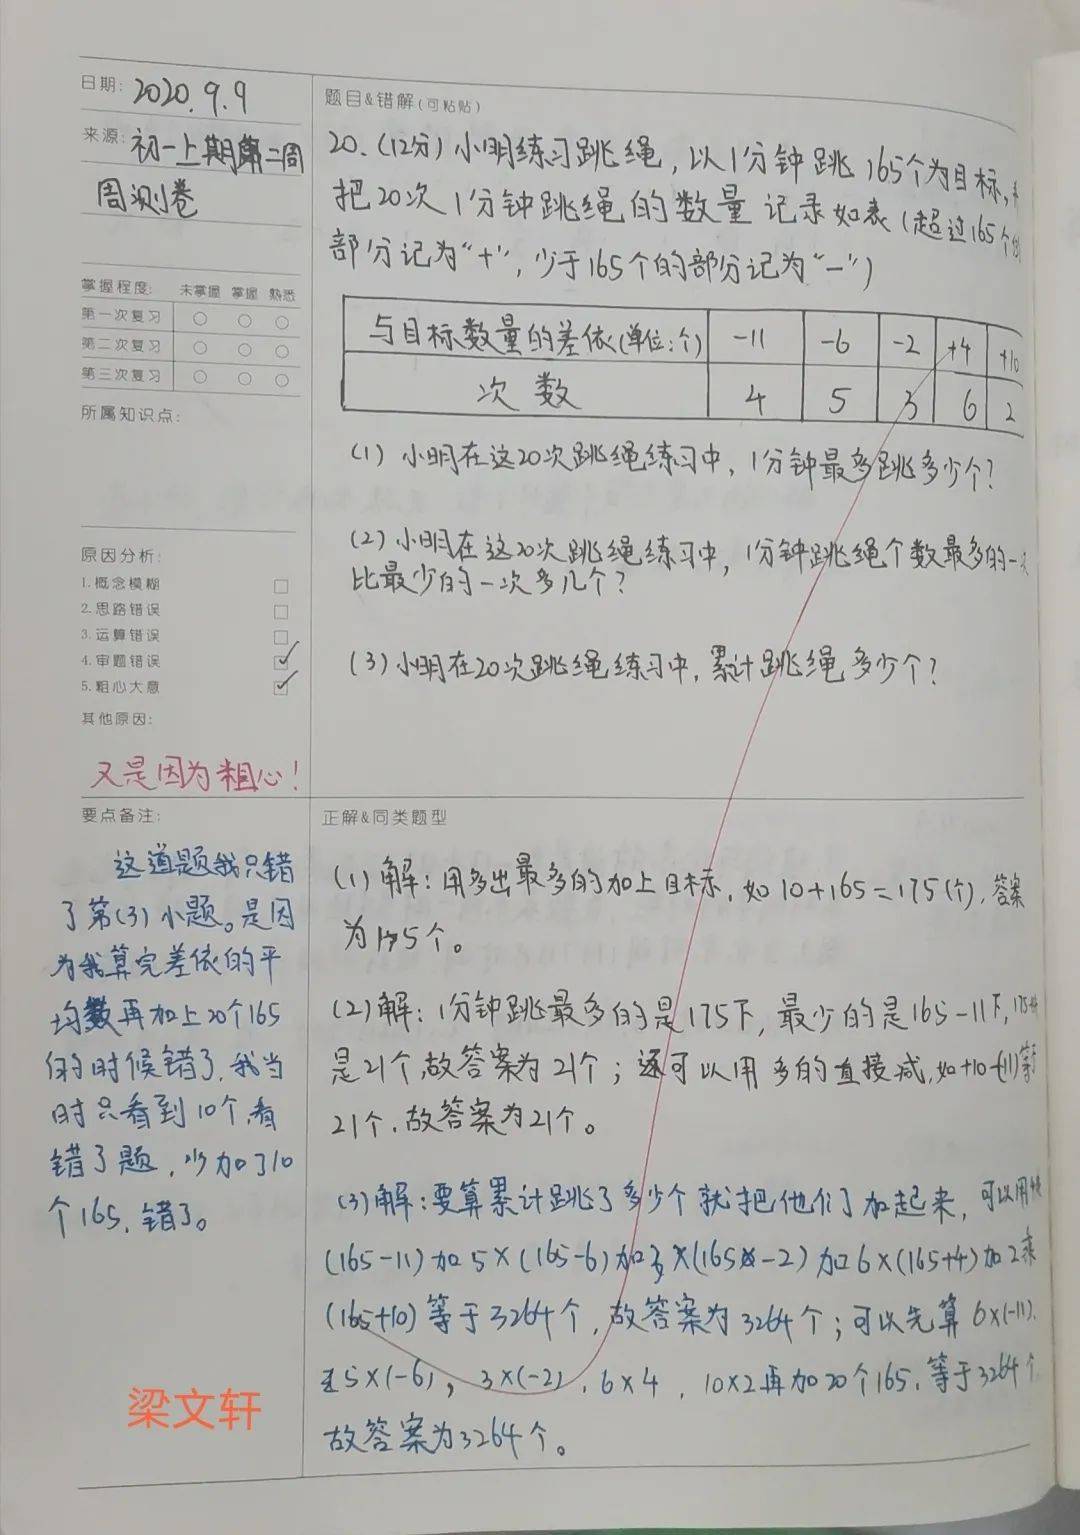 日期: 2020.9.9
来源: 初一上期第二周
周测卷
掌握程度: 未掌握 掌握 熟悉
第一次复习
第二次复习
第三次复习
所属知识点:
原因分析:
1.概念模糊
2.思路错误
3.运算错误
4.审题错误
5.粗心大意
其他原因:
又是因为粗心!
题目&错解(可粘贴)
20.(12分)小明练习跳绳,以1分钟跳165个为目标,
把20次1分钟跳绳的数量记录如表(超过165个
部分记为“+”,少于165个的部分记为“-”)
与目标数量的差依(单位:个) -11 -6 -2 +4 +10
次数 4 5 3 6 2
(1)小明在这20次跳绳练习中,1分钟最多跳多少个?
(2)小明在这20次跳绳练习中,1分钟跳绳个数最多的一
比最少的一次多几个?
(3)小明在20次跳绳练习中,累计跳绳多少个?
要点备注:
这道题我只错
了第(3)小题。是因
为我算完差依的平
均数再加上20个165
的时候错了,我当
时只看到10个,看
错了题,少加了10
个165,错了。
梁文轩
正解&同类题型
(1)解:用多出最多的加上目标,如10+165=175(个),答案
为175个。
(2)解:1分钟跳最多的是175下,最少的是165-11下,
是21个,故答案为21个;还可以用多的直接减,如+10-(-11)等于
21个,故答案为21个。
(3)解:要算累计跳了多少个就把他们了加起来,可以用
(165-11)加5×(165-6)加3×(165-2)加6×(165+4)加2乘
(165+10)等于3264个,故答案为3264个;可以先算6×(-11),
5×(-6),3×(-2),6×4,10×2再加20个165,等于3264个
故答案为3264个。